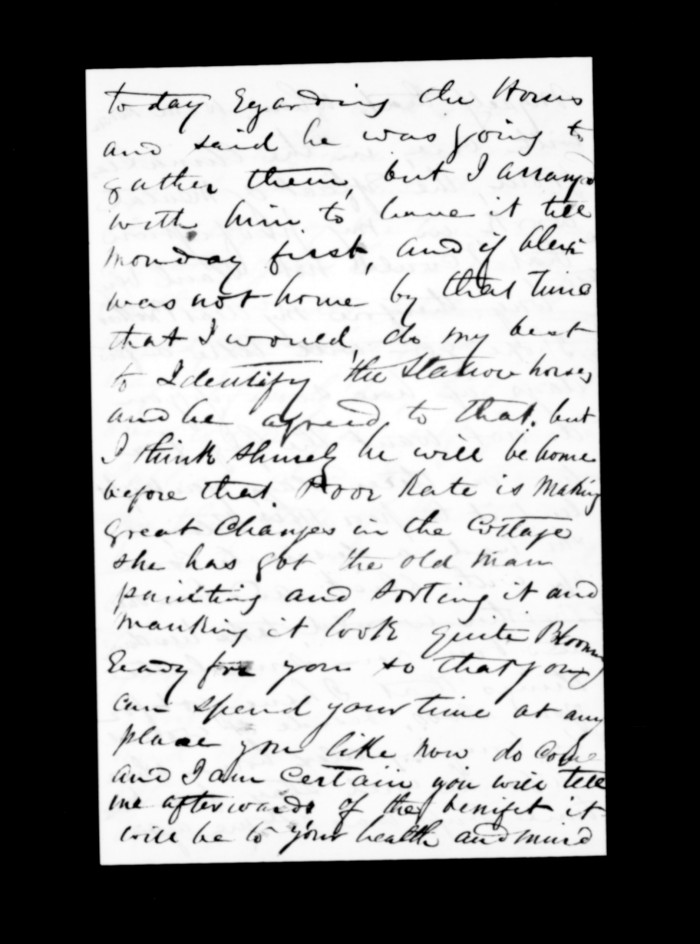 to day Egarding the Horses
and said he was going to
gather them, but I arranged
with him to leave it till
monday first, and if Alex
was not home by that time
that I would do my best
to Identify the Station horses
and he agreed to that. but
I think shurely he will be home
before that. Poor Kate is Making
great Changes in the Cottage
she has got the old man
painting and sorting it and
making it look quite Blooming
Ready for you so that you
can spend your time at any
place you like now do come
and I am certain you will tell
me afterwards of the benifit it
will be to your health and mind